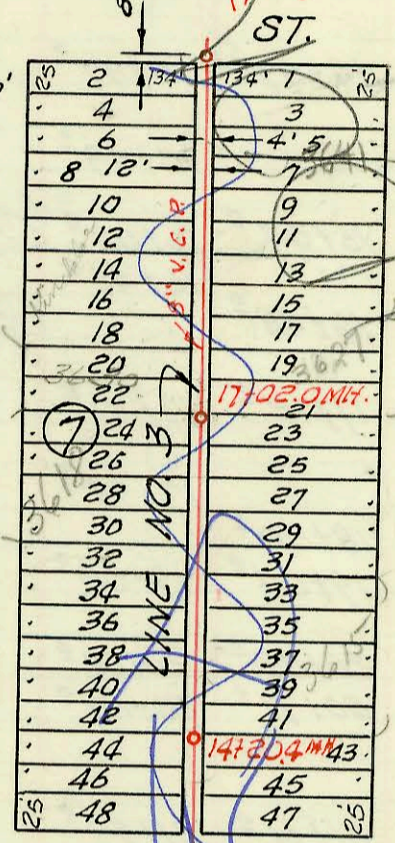 ST.
25 2 134' 134' 1 25
4 3
6 4' 5
8 12' 7
10 9
12 11
14 13
16 15
18 17
20 19
22 17+02.0 MH. 21
7 24 23
26 25
28 27
30 29
32 31
34 33
36 35
38 37
40 39
42 41
44 43
46 45
25 48 47 25
8" V.C.P.
LINE NO. 3
3627
3618
3615